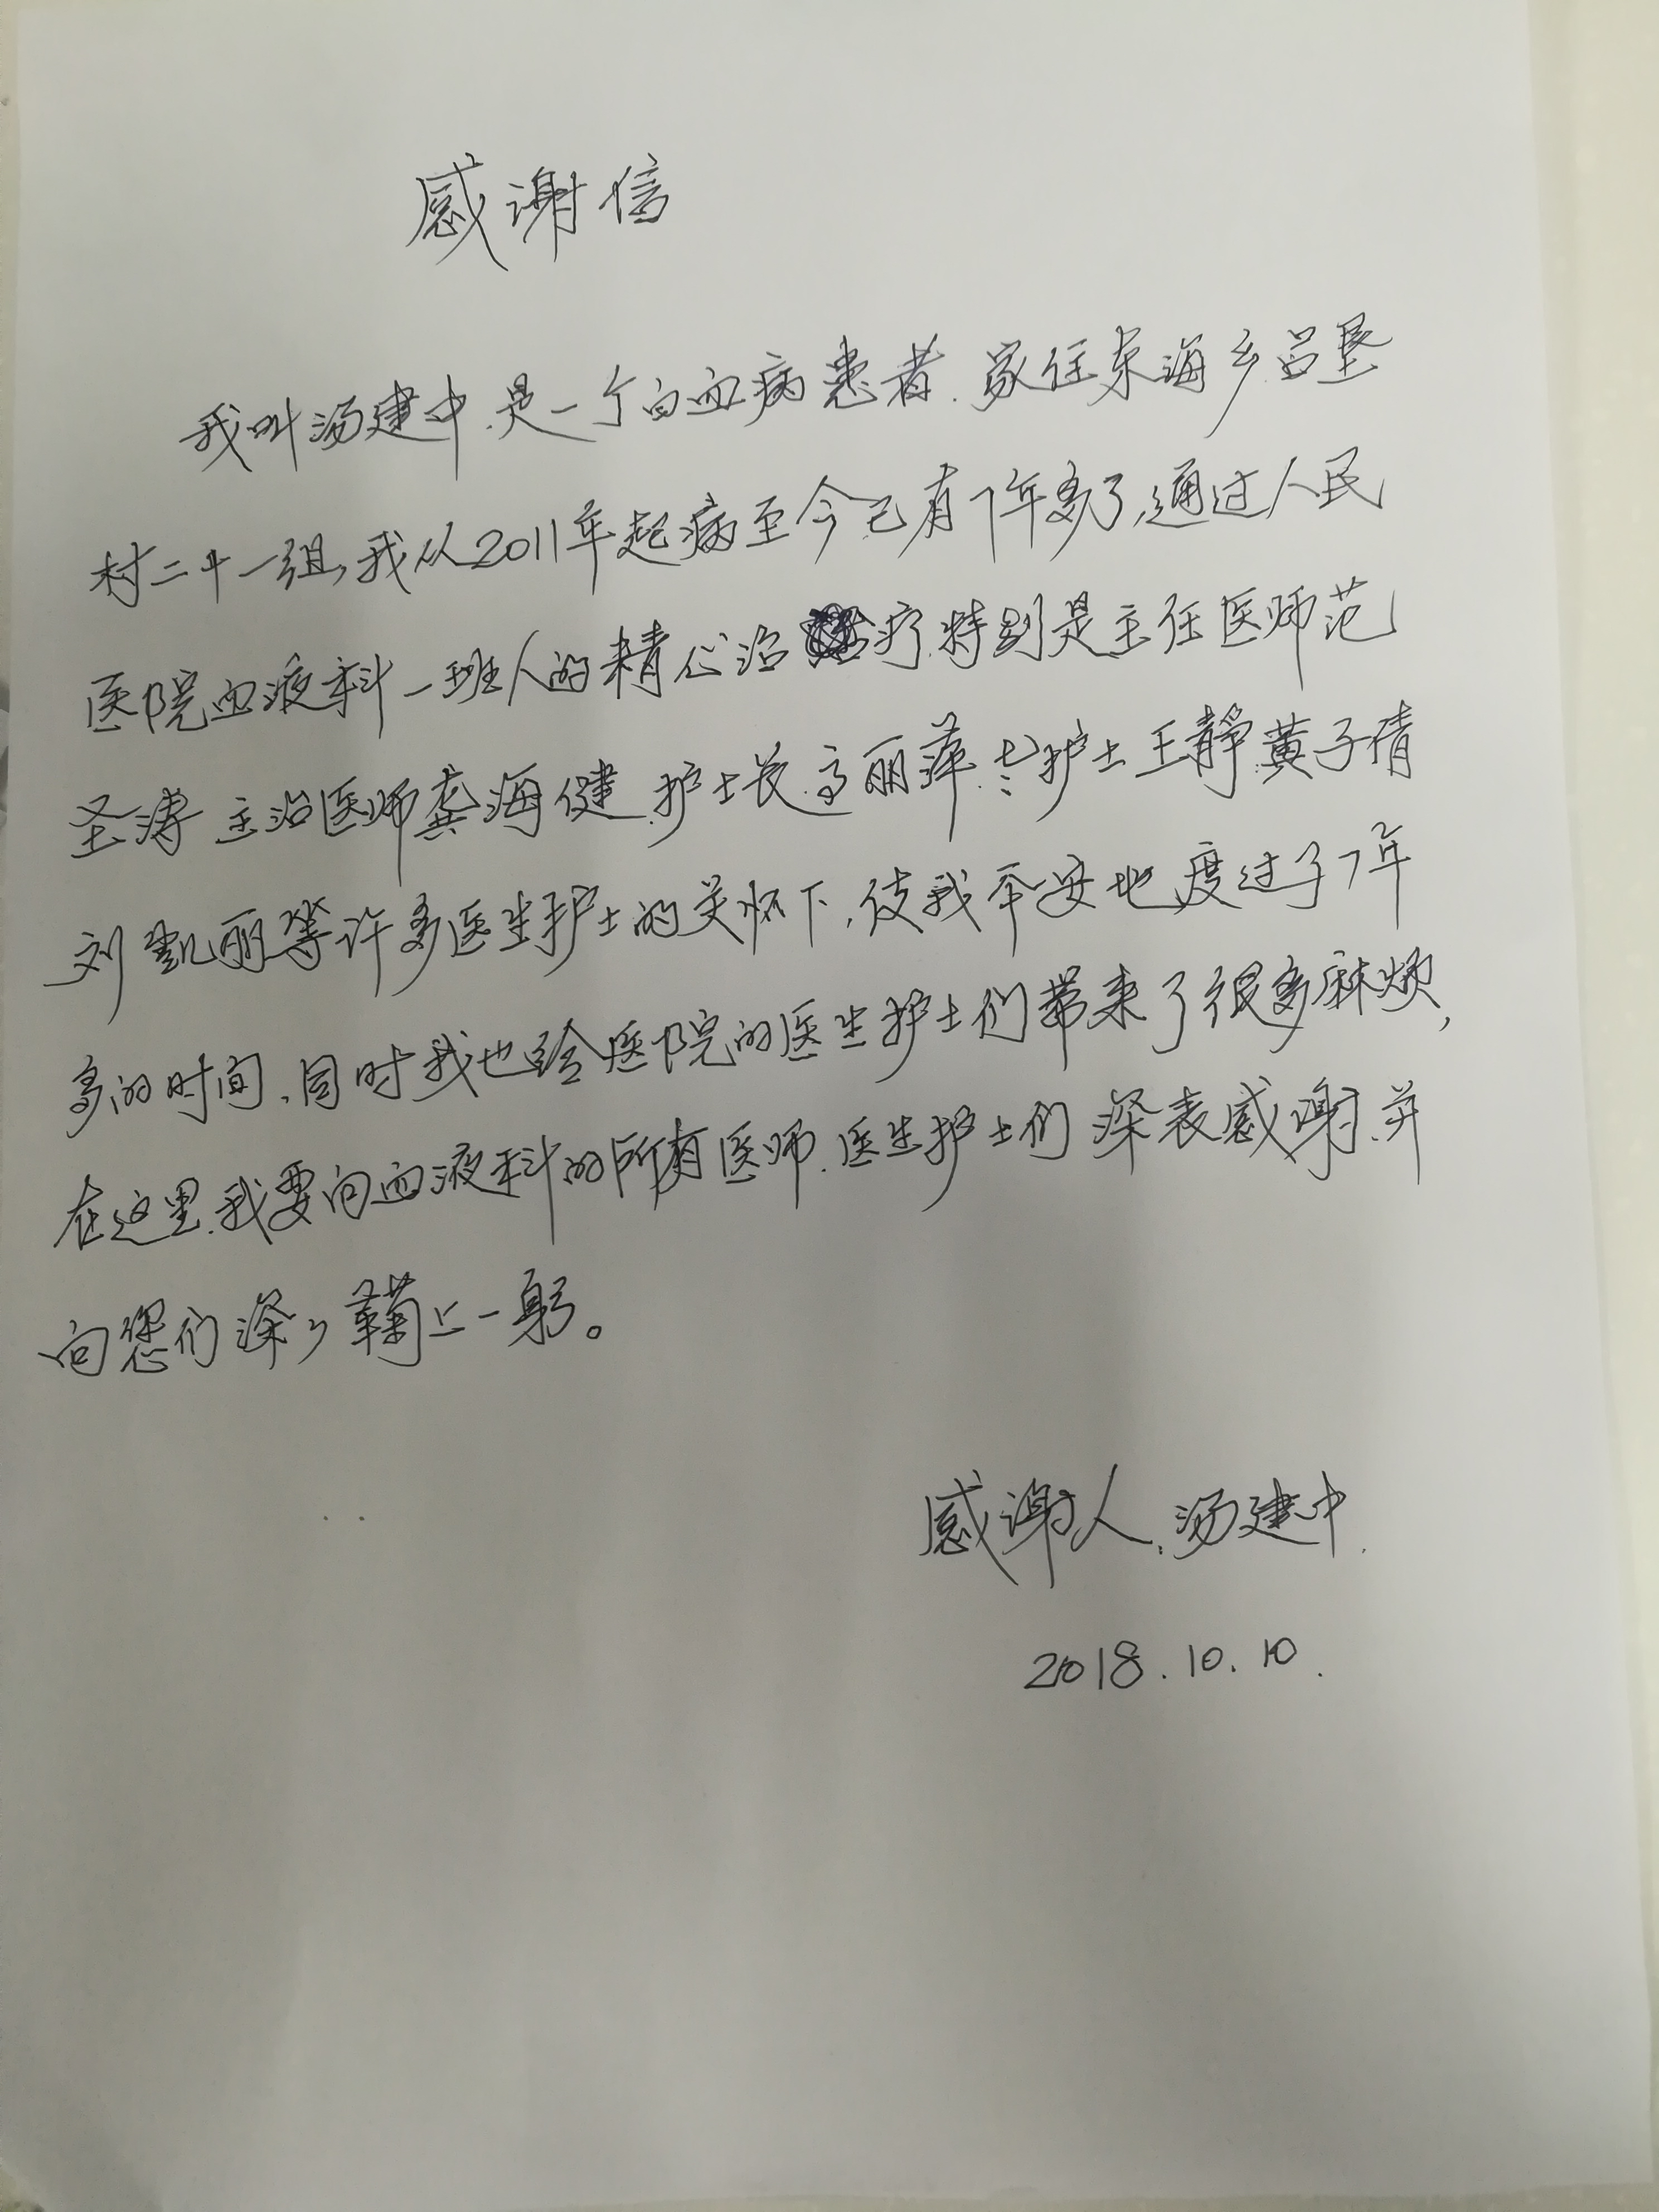 感谢信
我叫汤建中.是一个白血病患者.家住东海乡吕垦
村二十一组,我从2011年起病至今已有7年多了,通过人民
医院血液科一班人的精心治疗.特别是主任医师范
圣涛 主治医师龚海健.护士长高丽萍.护士王静黄子倩
刘凯丽等许多医生护士的关怀下,使我平安地度过了7年
多的时间,同时我也给医院的医生护士们带来了很多麻烦,
在这里.我要向血液科的所有医师.医生护士们深表感谢.并
向您们深深鞠上一躬。
感谢人:汤建中.
2018.10.10.